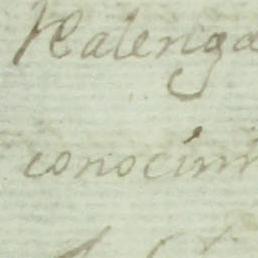 Realenga
conocimi